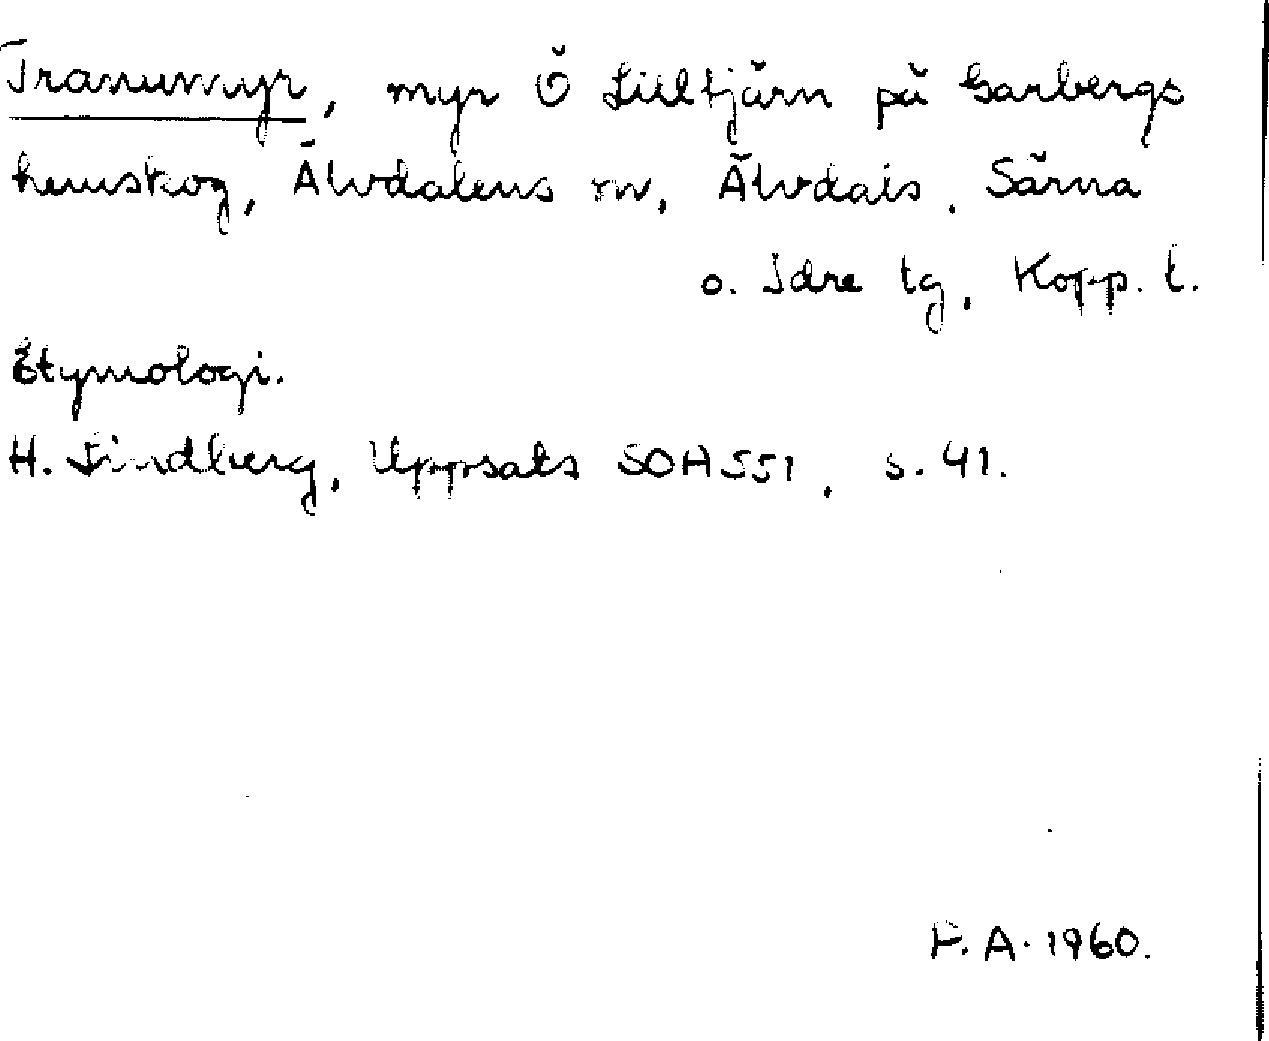 Tranumyr, myr Ö Lilltjärn på Garbergs
hemskog, Älvdalens sn, Älvdals, Särna
o. Idre tg, Kopp. l.
Etymologi.
H. Lindberg, Uppsats SOA 551, s. 41.
F. A. 1960.